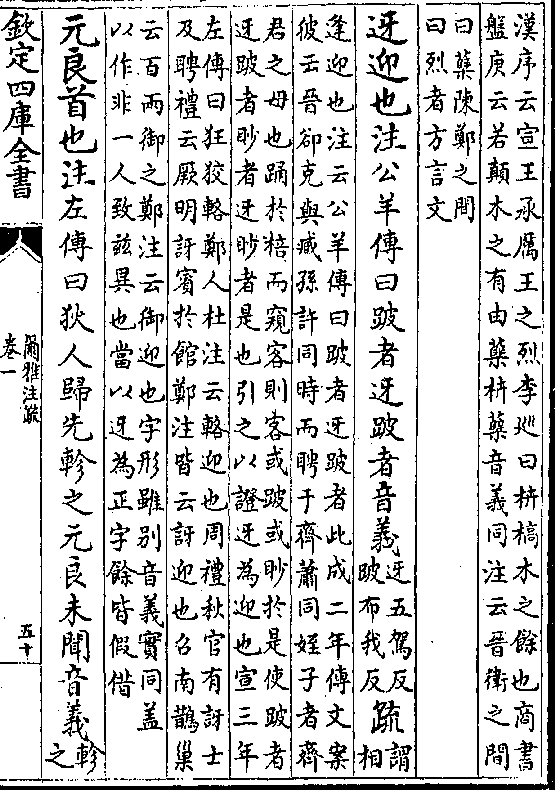 漢序云宣王承厲王之烈李廵曰枿槁木之餘也商書
盤庚云若顛木之有由蘖枿蘖音義同注云晉衛之間
曰蘖陳鄭之間
曰烈者方言文
迓迎也注公羊傳曰跛者迓跛者音義迓五駕反跛布我反疏謂相
逢迎也注云公羊傳曰跛者迓跛者此成二年傳文案
彼云晉卻克與臧孫許同時而聘于齊蕭同姪子者齊
君之母也踊於棓而窺客則客或跛或眇於是使跛者
迓跛者眇者迓眇者是也引之以證迓為迎也宣三年
左傳曰狂狡輅鄭人杜注云輅迎也周禮秋官有訝士
及聘禮云厥明訝賓於館鄭注皆云訝迎也召南鵲巢
云百兩御之鄭注云御迎也字形雖别音義實同蓋
以作非一人致兹異也當以迓為正字餘皆假借
元良首也注左傳曰狄人歸先軫之元良未聞音義軫之
欽定四庫全書
爾雅注疏
卷一
五十